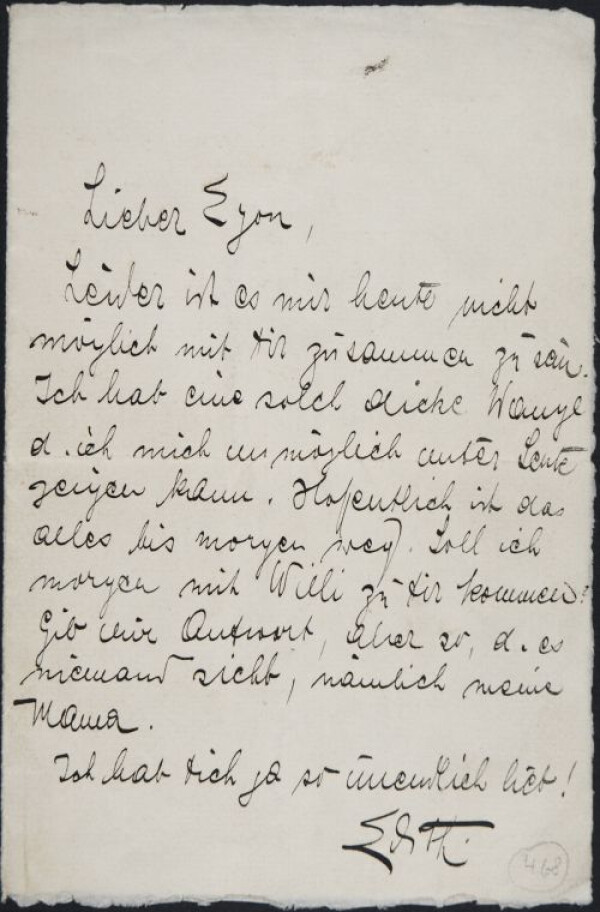 Lieber Egon,
Leider ist es mir heute nicht
möglich mit Dir zusammen zu sein.
Ich hab eine solch dicke Wange
d. ich mich unmöglich unter Leute
zeigen kann. Hoffentlich ist das
alles bis morgen weg. Soll ich
morgen mit Willi zu Dir kommen?
Gib mir Antwort, aber so, d. es
niemand sieht, nämlich meine
Mama.
Ich hab Dich ja so unendlich lieb!
Edith.
468